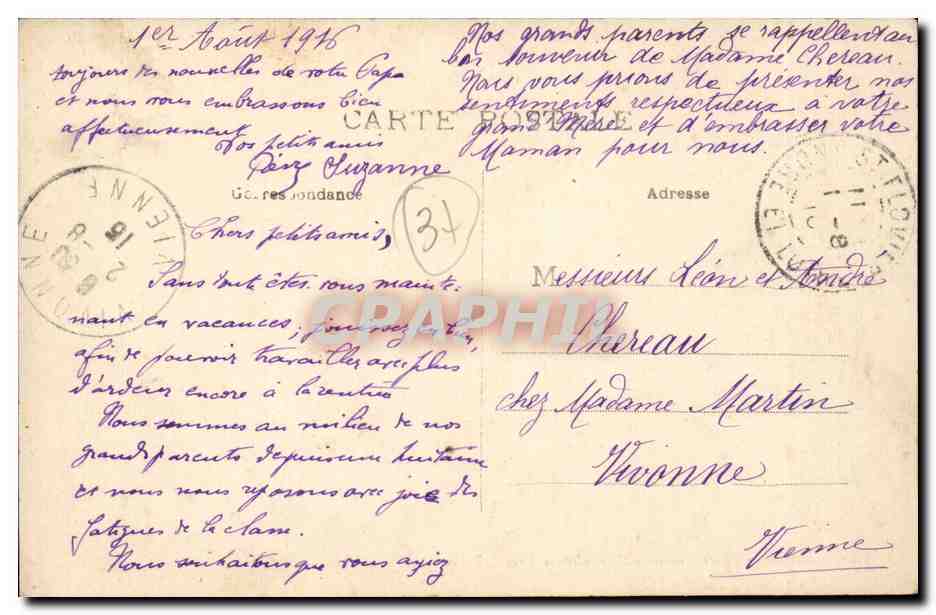 1er Août 1916
toujours des nouvelles de votre Papa
et nous vous embrassons bien
affectueusement
Vos petits amis
Suzanne
Nos grands parents se rappellent au
bon souvenir de Madame Chereau.
Nous vous prions de présenter nos
sentiments respectueux à votre
grand'Mère et d'embrasser votre
Maman pour nous.
CARTE POSTALE
Correspondance
Adresse
37
Chers petits amis,
Sans doute êtes-vous mainte-
nant en vacances; jouissez-en bien,
afin de pouvoir travailler avec plus
d'ardeur encore à la rentrée
Nous sommes au milieu de nos
grands parents depuis une huitaine
et nous nous reposons avec joie des
fatigues de la classe.
Nous souhaitons que vous ayiez
Messieurs Léon et André
Chereau
chez Madame Martin
Vivonne
Vienne
VIVONNE
VIENNE
CPAPHIL